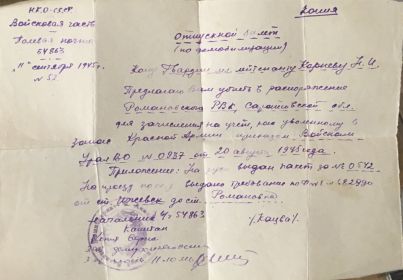 Копия
НКО-СССР
Войсковая часть
Полевая почта
54863
"11" сентября 1945г.
N 52
Отпускной билет
(по демобилизации)
Гвардии лейтенанту Корневу Н.И.
Предлагаю Вам убыть в распоряжение
Романовского РВК, Саратовской обл.
для зачисления на учёт, как уволенному в
запас Красной Армии приказом Войскам
УралВО N 0937 от 20 августа 1945 года.
Приложение: На руки выдан пакет за N 0542.
На проезд выдано требование
от ст. Ижевск до ст. Романовка
54863
Капитан
/Кацва/
Копия верна